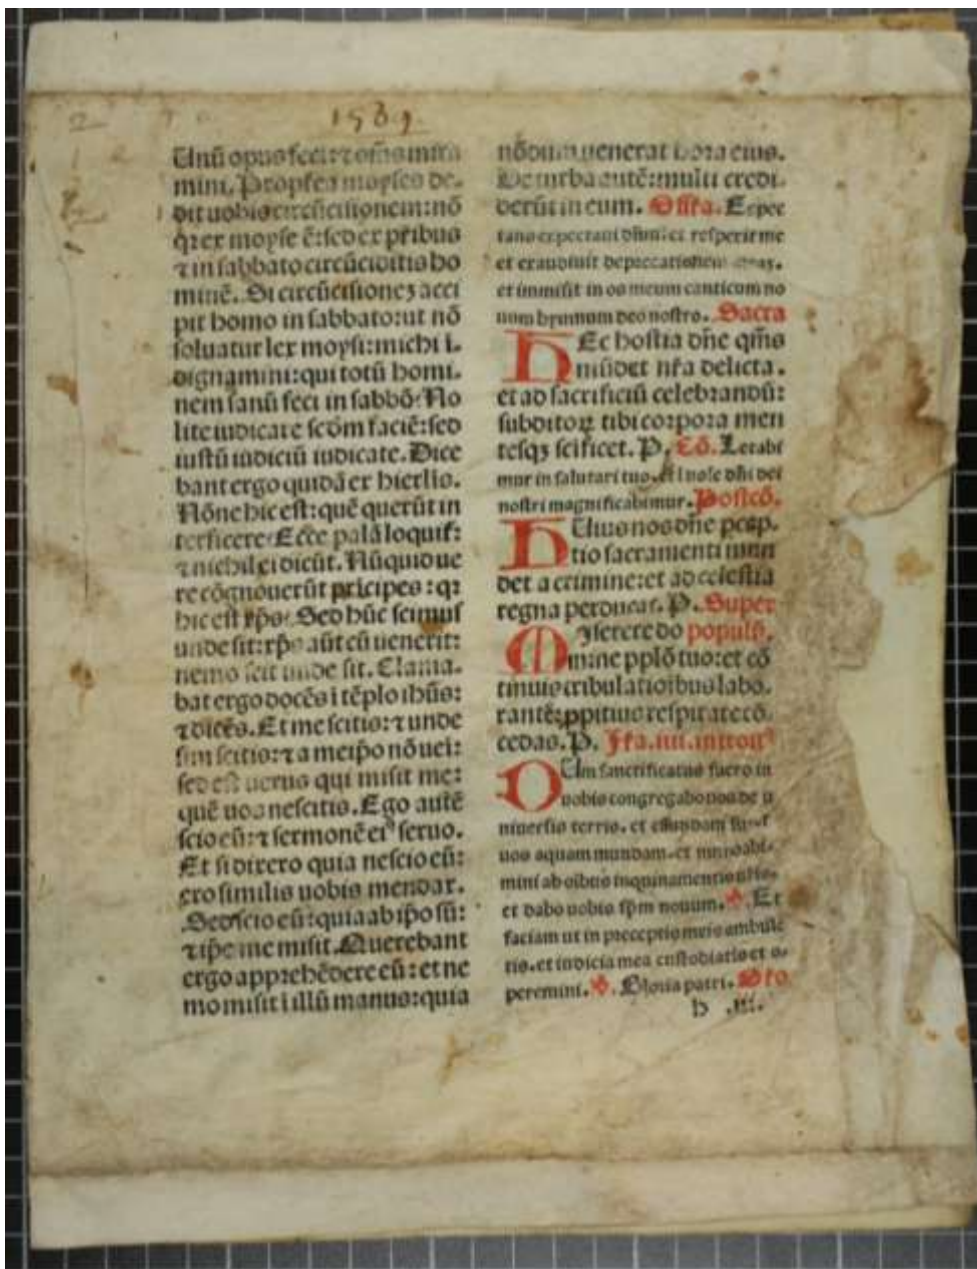 1589.
Unū opus feci: ⁊ om̄s mira
mini. Propterea moyses de-
dit uobis circūcisionem: nō
qꝛ ex moyse ē: sed ex pr̄ibus
⁊ in sabbato circūciditis ho
minē. Si circūcisionēꝫ acci
pit homo in sabbato: ut nō
soluatur lex moysi: michi i-
dignamini: qui totū homi-
nem sanū feci in sabbō. No
lite iudicare scōm faciē: sed
iustū iudiciū iudicate. Dice
bant ergo quidā ex hierlis.
Nōne hic est: quē querūt in
terficere. Ecce palā loquit̄:
⁊ nichil ei dicūt. Nūquid ue
re cōgnouerūt pricipes: qꝛ
hic est xp̄s. Sed hūc scimus
unde sit: xp̄s aūt cū uenerit:
nemo scit unde sit. Clama-
bat ergo docēs i tēplo ihūs:
⁊ dicēs. Et me scitis: ⁊ unde
sim scitis: ⁊ a meip̄o nō ueī:
sed est uerus qui misit me:
quē uos nescitis. Ego autē
scio eū: ⁊ sermonē ei⁹ seruo.
Et si dixero quia nescio eū:
ero similis uobis mendax.
Sed scio eū: quia ab ip̄o sū:
⁊ ip̄e me misit. Querebant
ergo apprehēdere eū: et ne
mo misit i illū manus: quia
nōdum uenerat hora eius.
De turba autē: multi credi-
derūt in eum. Offr̄a. Expec
tans expectaui dn̄m: et respexit me
et exaudiuit deprecationem
et immisit in os meum canticum no
uum hymnum deo nostro. Sacra
HEc hostia dn̄e qm̄s
mūdet nr̄a delicta.
et ad sacrificiū celebrandū:
subditoꝝ tibi corpora men
tesqꝫ scīficet. P. Cō. Letabi
mur in salutari tuo. et i noīe dn̄i dei
nostri magnificabimur. Postcō.
HUius nos dn̄e pcep-
tio sacramenti mun
det a crimine: et ad celestia
regna perducat. P. Super
MIserere do populū.
mine pplō tuo: et cō
tinuis tribulatioībus labo-
rantē: ppitius respirare cō-
cedas. P. Fr̄a. iiii. introit⁹
CUm sanctificatus fuero in
uobis congregabo uos de u
niuersis terris. et effundam sup
uos aquam mundam. et mundabi-
mini ab oībus inquinamentis
et dabo uobis sp̄m nouum. ℣. Et
faciam ut in preceptis meis ambule
tis. et iudicia mea custodiatis et o-
peremini. ℣. Gloria patri. Oro
h .iii.